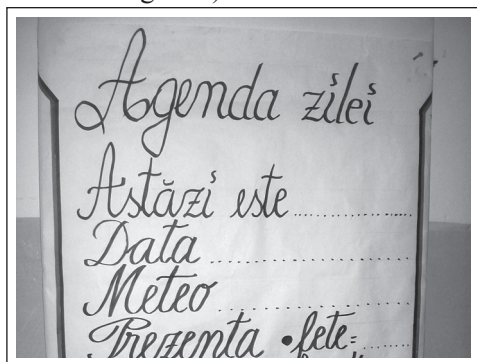 Agenda zilei
Astăzi este..................
Data ........................
Meteo .....................
Prezenta • fete=........